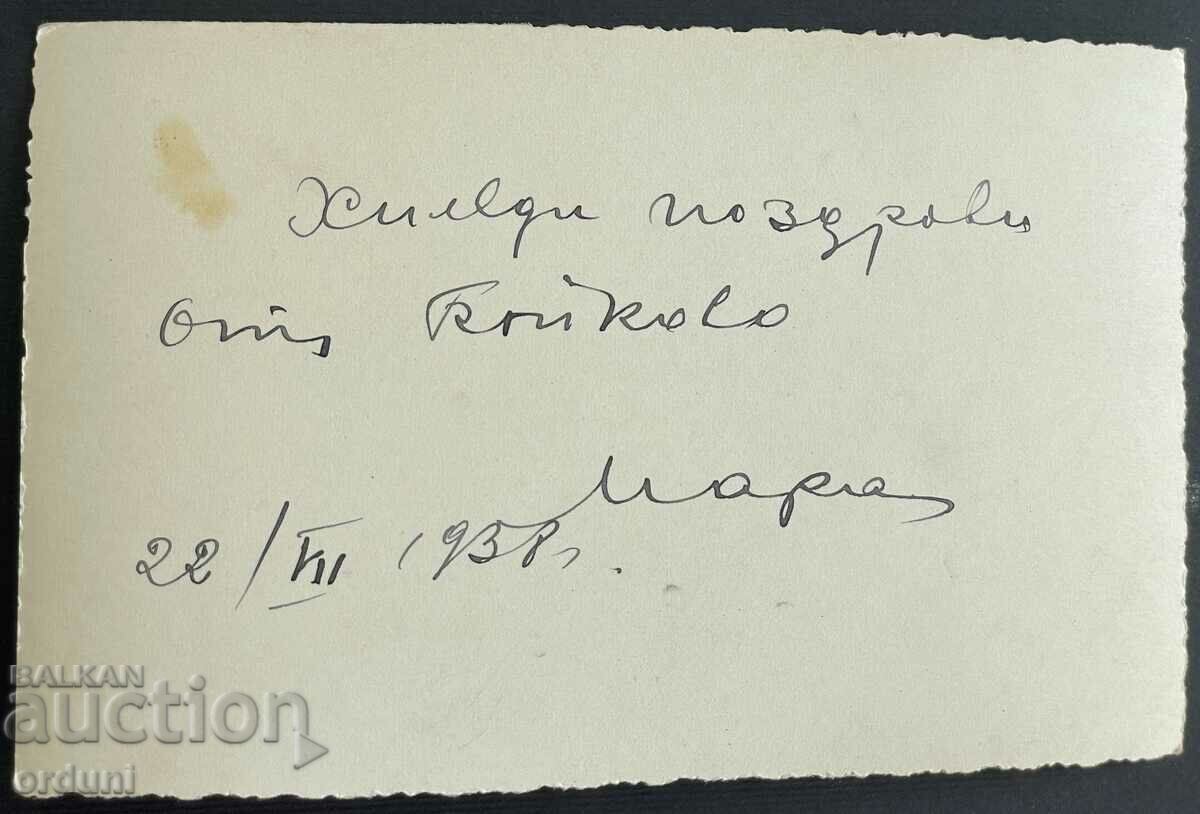 Хиляди поздрави
отъ Бойково
Мара
22/VII 1938 г.
BALKAN
auction
orduni